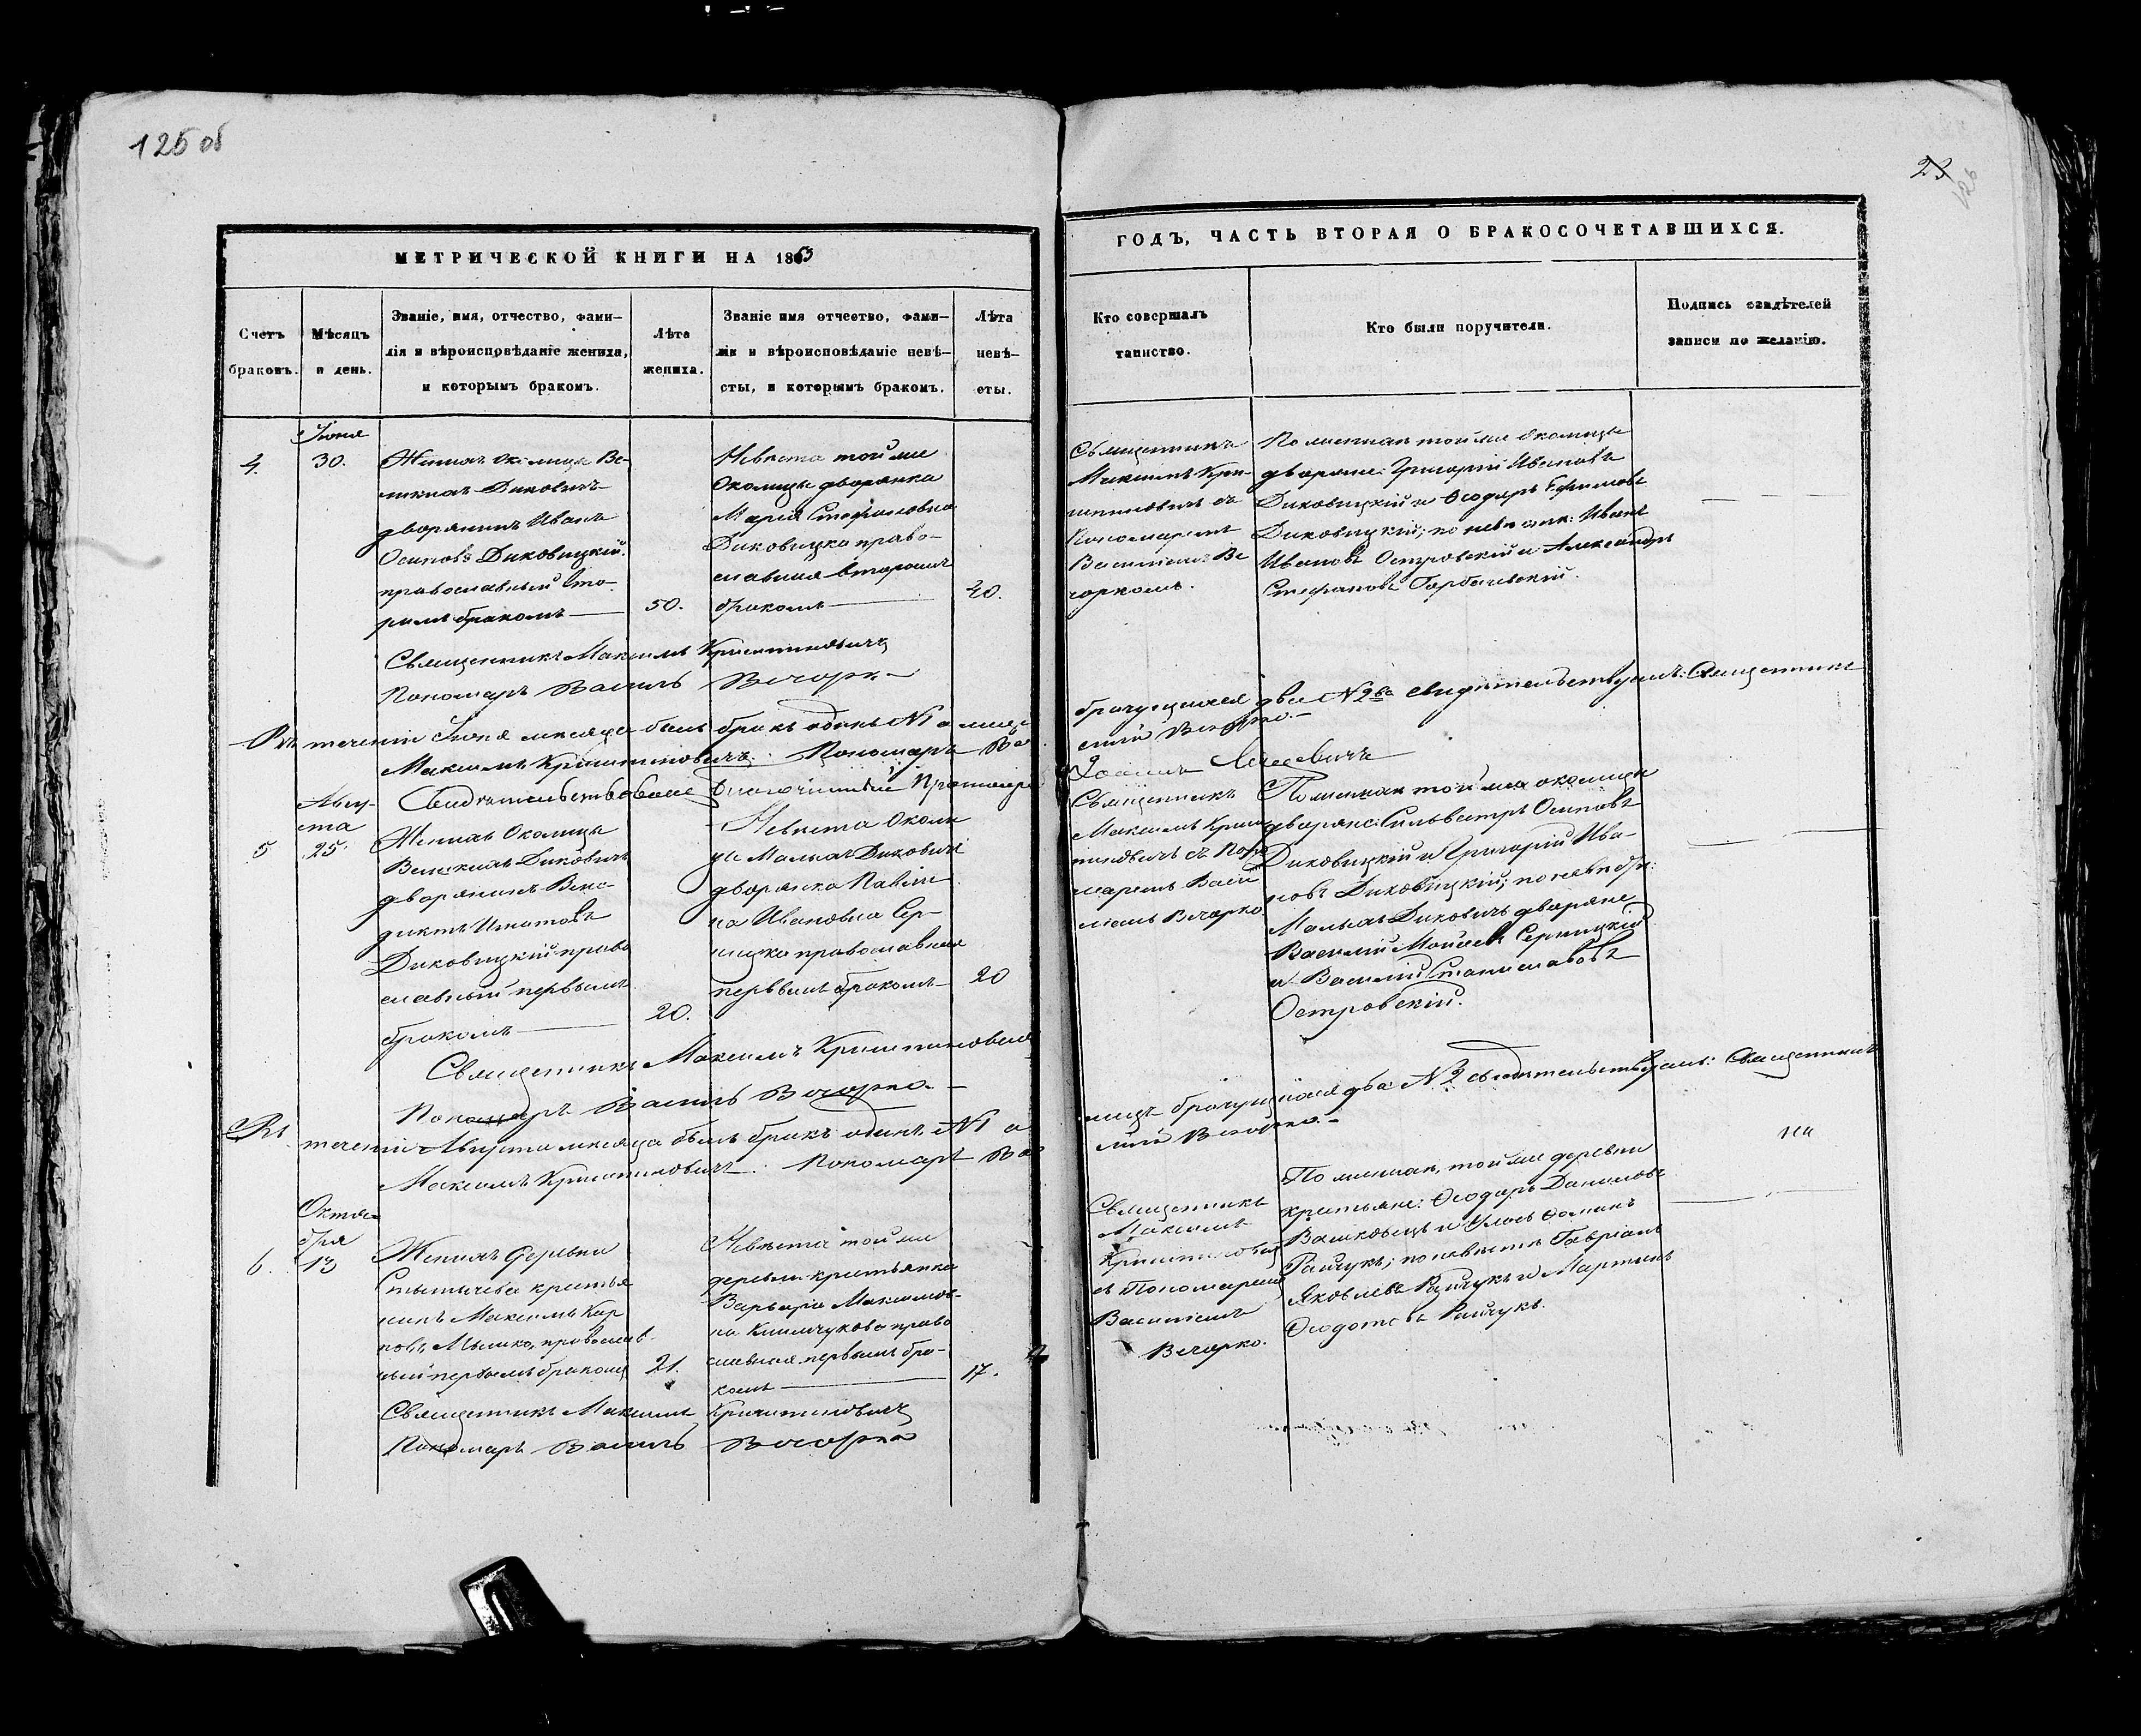 125 об
23
126
МЕТРИЧЕСКОЙ КНИГИ НА 1863
ГОДЪ, ЧАСТЬ ВТОРАЯ О БРАКОСОЧЕТАВШИХСЯ.
Счетъ
браковъ.
Мѣсяцъ
и день.
Званіе, имя, отчество, фами-
лія и вѣроисповѣданіе жениха,
и которымъ бракомъ.
Лѣта
жениха.
Званіе имя отчество, фами-
лія и вѣроисповѣданіе невѣ-
сты, и которымъ бракомъ.
Лѣта
невѣ-
сты.
Кто совершалъ
таинство.
Кто были поручители.
Подпись свидѣтелей
записи по желанію.
4.
Іюня
30.
Женихъ Околицы Ве-
ликихъ Диковичъ
дворянинъ Иванъ
Осиповъ Диковицкій
православный вто-
рымъ бракомъ
50.
Невѣста той же
Околицы дворянка
Марія Стефановна
Диковицка право-
славная вторымъ
бракомъ
20.
Священникъ
Максимъ Кри-
штиновичъ съ
Пономаремъ
Василіемъ Ве
чоркомъ.
По женихѣ той же Околицы
дворяне: Григорій Ивановъ
Диковицкій и Ѳеодоръ Ефимовъ
Диковицкій; по невѣстѣ: Иванъ
Ивановъ Островскій и Александръ
Стефановъ Горбачевскій.
Священникъ Максимъ Криштиновичъ
Пономаръ Василь Вечорко
Въ теченіи Іюня мѣсяца былъ бракъ одинъ №1 а лицъ
брачущихся два №2 свидѣтельствуемъ: Священникъ
Максимъ Криштиновичъ. Пономаръ Ва
силій Вечорко.
Свидѣтельствовалъ Благочинный Протоіерей
Іоаннъ
5
Авгу-
ста
25.
Женихъ Околицы
Великихъ Диковичъ
дворянинъ Вене-
диктъ Игнатовъ
Диковицкій право
славный первымъ
бракомъ
20.
Невѣста Околи
цы Малыхъ Диковичъ
дворянка Павли
на Ивановна Сер-
ницка православная
первымъ бракомъ
20
Священникъ
Максимъ Криш
тиновичъ съ Поно
маремъ Васи
ліемъ Вечорко.
По женихѣ той же околицы
дворяне: Сильвестръ Осиповъ
Диковицкій и Григорій Ива-
новъ Диковицкій; по невѣстѣ:
Малыхъ Диковичъ дворяне
Василій Серницкій
и Василій Станиславовъ
Островскій.
Священникъ Максимъ Криштиновичъ
Пономаръ Василь Вечорко
Въ теченіи Августа мѣсяца былъ бракъ одинъ №1 а
лицъ брачущихся два №2 свидѣтельствуемъ: Священникъ
Максимъ Криштиновичъ. Пономаръ Ва
силій Вечорко.
6.
Октя-
бря
13
Женихъ деревни
Стытычева крестья
нинъ Максимъ Кар
повъ Мышко, православ-
ный первымъ бракомъ
21.
Невѣста той же
деревни крестьянка
Варвара Максимов-
на Климчукова право
славная первымъ бра-
комъ
17.
Священникъ
Максимъ
Криштиновичъ
съ Пономаремъ
Василіемъ
Вечорко.
По женихѣ, той же деревни
крестьяне: Ѳеодоръ Даниловъ
и Ѳоминъ
Райчукъ; по невѣстѣ Гавріилъ
Яковлевъ Райчукъ и Мартинъ
Ѳеодотовъ Райчукъ.
Священникъ Максимъ Криштиновичъ
Пономаръ Василь Вечорко